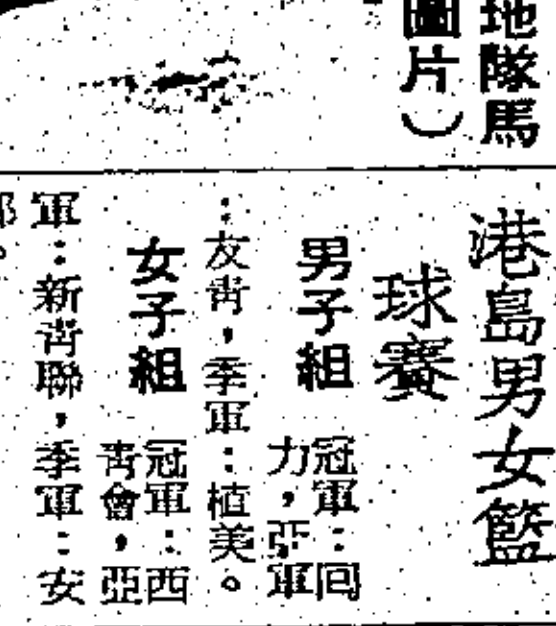 地隊馬
圖片）
港島男女籃
球賽
男子組
冠軍：囘
力，亞軍
：友青，季軍：植美。
女子組
冠軍：西
青會，亞
軍：新青聯，季軍：安